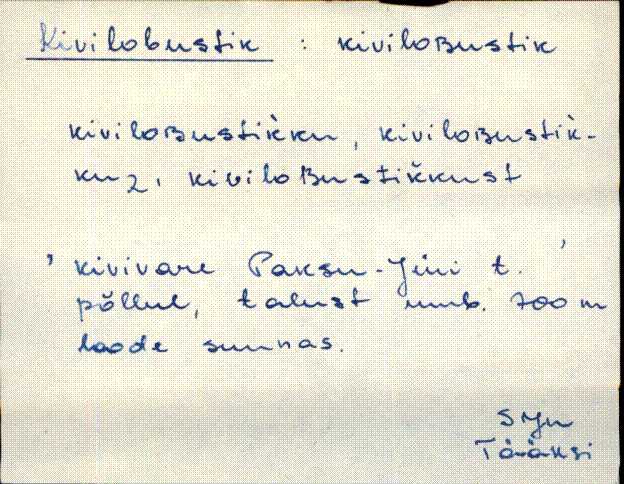 Kivilobustik : kiviloʙustik
kiviloʙustik̀ku, kiviloʙustik̀-
kuz, kiviloʙustik̆kust
' kivivare Paksu-Jüri t. '
põllul, talust umb. 700 m
loode suunas.
SJn
Tääksi